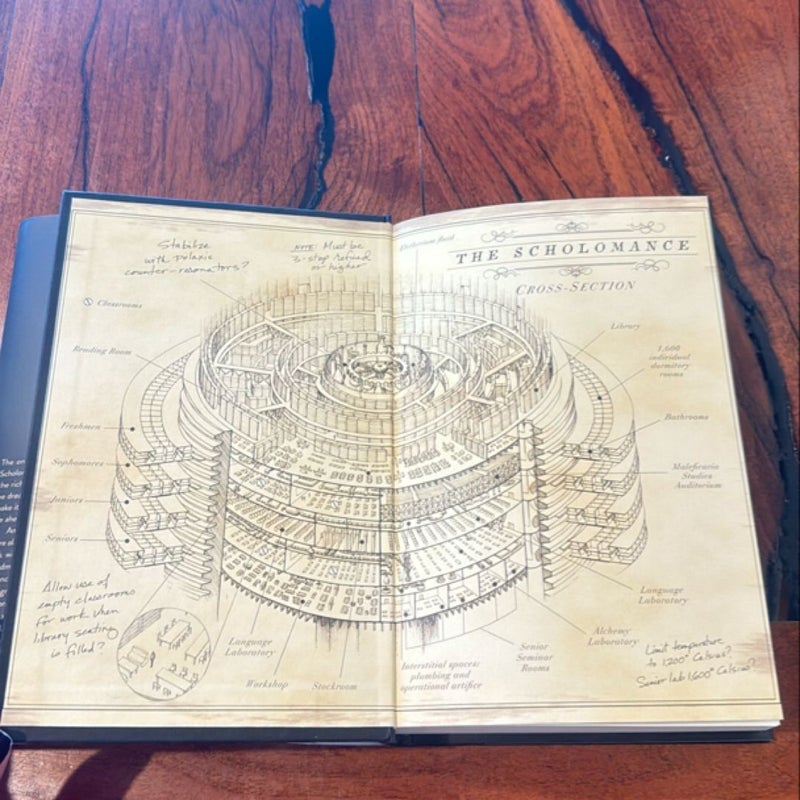 Stabilize
with polaxic
counter-resonators?
NOTE: Must be
3-step refined
or higher
Etherium fluid
THE SCHOLOMANCE
CROSS-SECTION
Classrooms
Reading Room
Freshmen
Sophomores
Juniors
Seniors
Library
1,600
individual
dormitory
rooms
Bathrooms
Maleficaria
Studies
Auditorium
Language
Laboratory
Alchemy
Laboratory
Senior
Seminar
Rooms
Interstitial spaces:
plumbing and
operational artifice
Stockroom
Workshop
Language
Laboratory
Allow use of
empty classrooms
for work when
library seating
is filled?
Limit temperature
to 1,200° Celsius?
Senior lab 1,600° Celsius?
The
Scholo
the rich